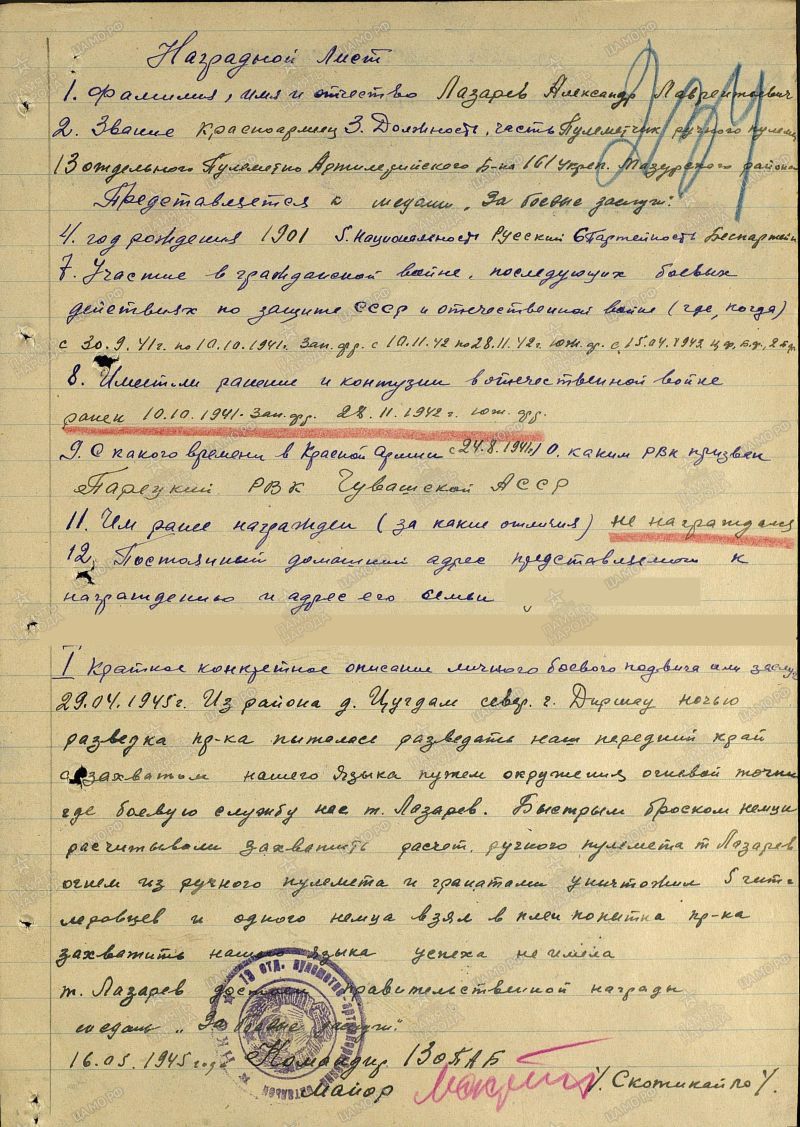 Наградной Лист
1. Фамилия, имя и отчество Лазарев Александр Лаврентьевич
2. Звание Красноармеец 3. Должность, часть Пулеметчик ручного пулем
13 отдельного Пулеметно Артилерийского Б-на 161 Укреп. Мазурского района
Представляется к медали „За боевые заслуги".
4. год рождения 1901 5. Национальность Русский 6 Партейность Беспартейн
7. Участие в гражданской войне, последующих боевых
действиях по защите СССР и отечественной войне (где, когда)
с 30.9.41г. по 10.10.1941. Зап. фр. с 10.11.42 по 28.11.42г. юж. фр. с 15.04.1943
8. Имеет ли ранение и контузии в отечественной войне
ранен 10.10.1941. Зап. фр. 28.11.1942г. юж. фр.
9. С какого времени в Красной Армии с 24.8.1941г. 10. каким РВК призван
РВК Чувашской АССР
11. Чем ранее награжден (за какие отличия) не награждался
12. Постоянный домашний адрес представляемого к
награждению и адрес его семьи
I Краткое конкретное описание личного боевого подвига или заслуг
29.04.1945г. Из района д. Цугдам север. г. Диршау ночью
разведка пр-ка пыталась разведать наш передний край
с захватом нашего языка путем окружения огневой точки
где боевую службу нес т. Лазарев. Быстрым броском немцы
расчитывали захватить расчет ручного пулемета т Лазарев
огнем из ручного пулемета и гранатами уничтожил 5 гит-
леровцев и одного немца взял в плен попытка пр-ка
захватить нашего языка успеха не имела
т. Лазарев достоен правительственной награды
медаль „За боевые заслуги".
16.05.1945 года Командир 13 ОПАБ
Майор /. Скотикайло /.
13 отд. пулеметно-артиллерийский батальон
НКО
ЦАМО.РФ
ПАМЯТЬ НАРОДА